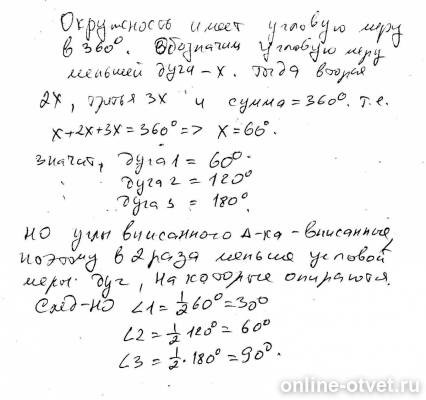 Окружность имеет угловую меру
в 360°. Обозначим угловую меру
меньшей дуга - x. Тогда вторая
2x, третья 3x и сумма = 360°. т.е.
x+2x+3x=360° => x=60°.
значит, дуга 1 = 60°
дуга 2 = 120°
дуга 3 = 180°
НО углы вписанного Δ-ка - вписанные,
поэтому в 2 раза меньше угловой
меры дуг, на которые опираются.
След-но ∠1 = ½ 60° = 30°
∠2 = ½ 120° = 60°
∠3 = ½ · 180° = 90°.
online-otvet.ru